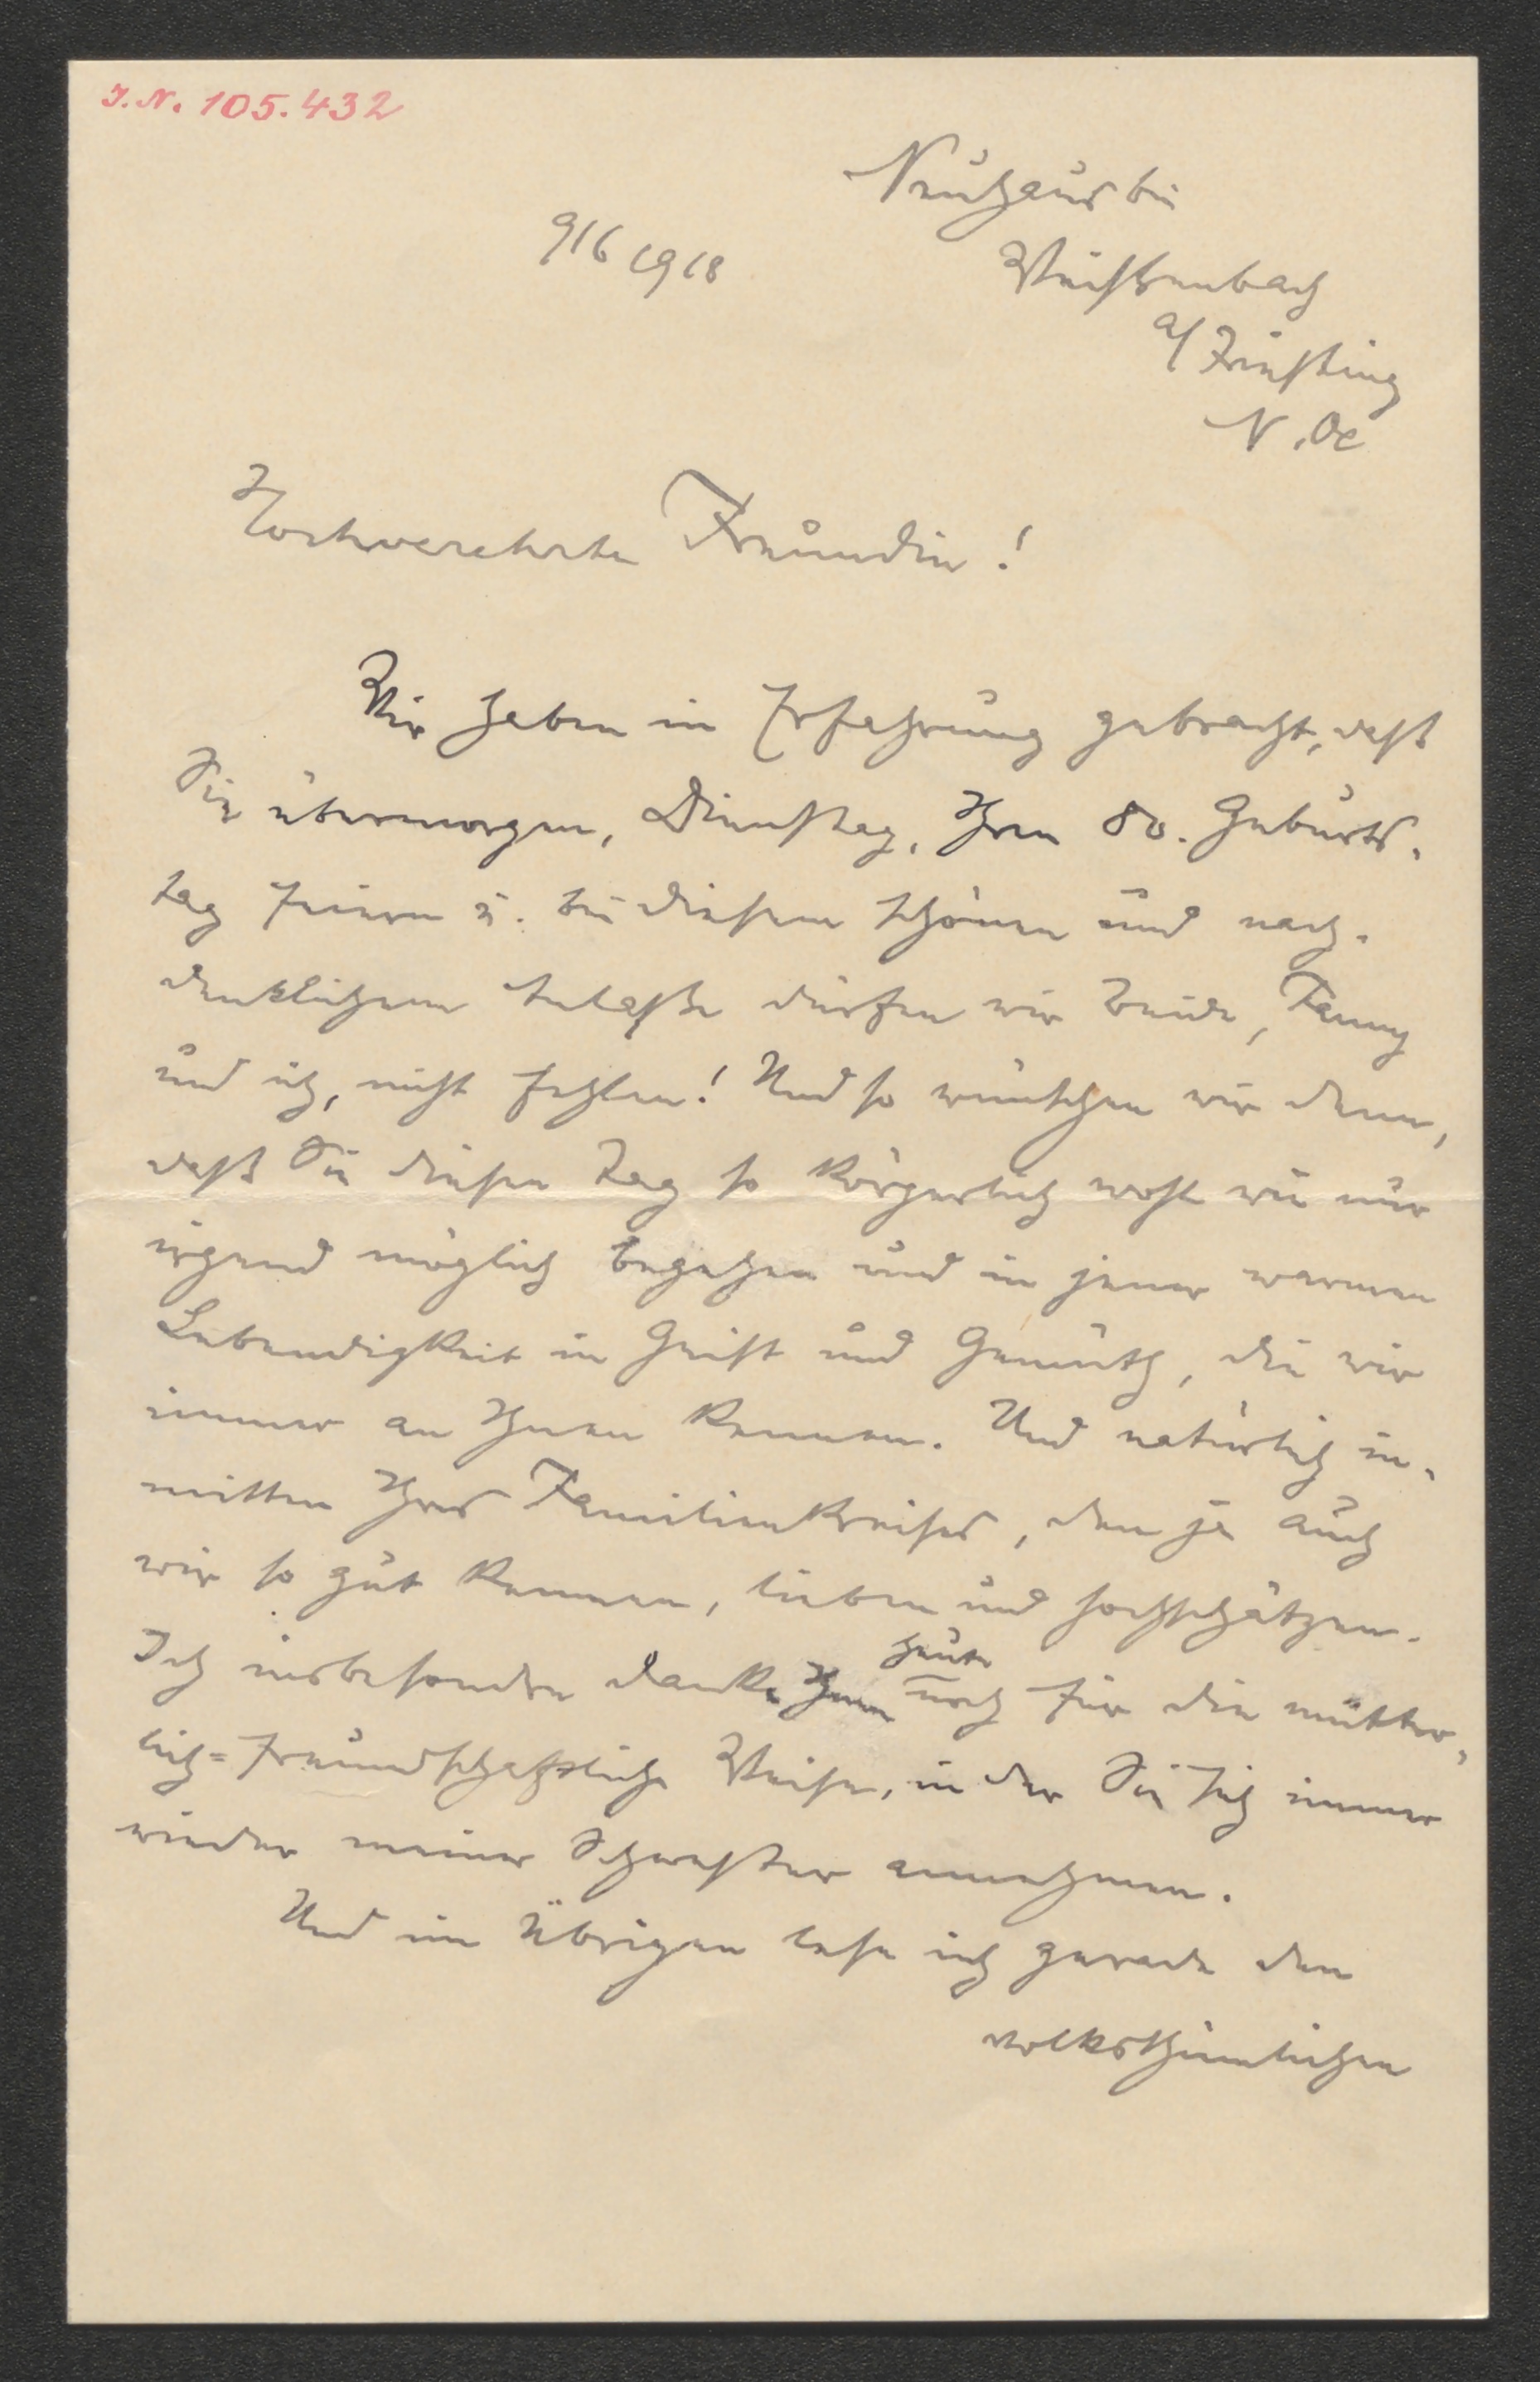 I.N. 105.432
Neuhaus bei
9/6 1918
Weissenbach
a/Triesting
N.Oe
Hochverehrte Freundin!
Wir haben in Erfahrung gebracht, daß
Sie übermorgen, Dienstag, Ihren 80. Geburts-
tag feiern u. bei diesem schönen und nach-
denklichem Anlaße dürfen wir Beide, Fanny
und ich, nicht fehlen! Und so wünschen wir denn,
daß Sie diesen Tag so körperlich wohl wie nur
irgend möglich begehen und in jener warmen
Lebendigkeit in Geist und Gemüth, die wir
immer an Ihnen kennen. Und natürlich in-
mitten Ihres Familienkreises, den ja auch
wir so gut kennen, lieben und hochschätzen.
heute
Ich insbesondere danke Ihnen noch für die mütter-
lich=freundschaftliche Weise, in der Sie sich immer
wieder meiner Schwester annehmen.
Und im Übrigen lese ich gerade den
volksthümlichen